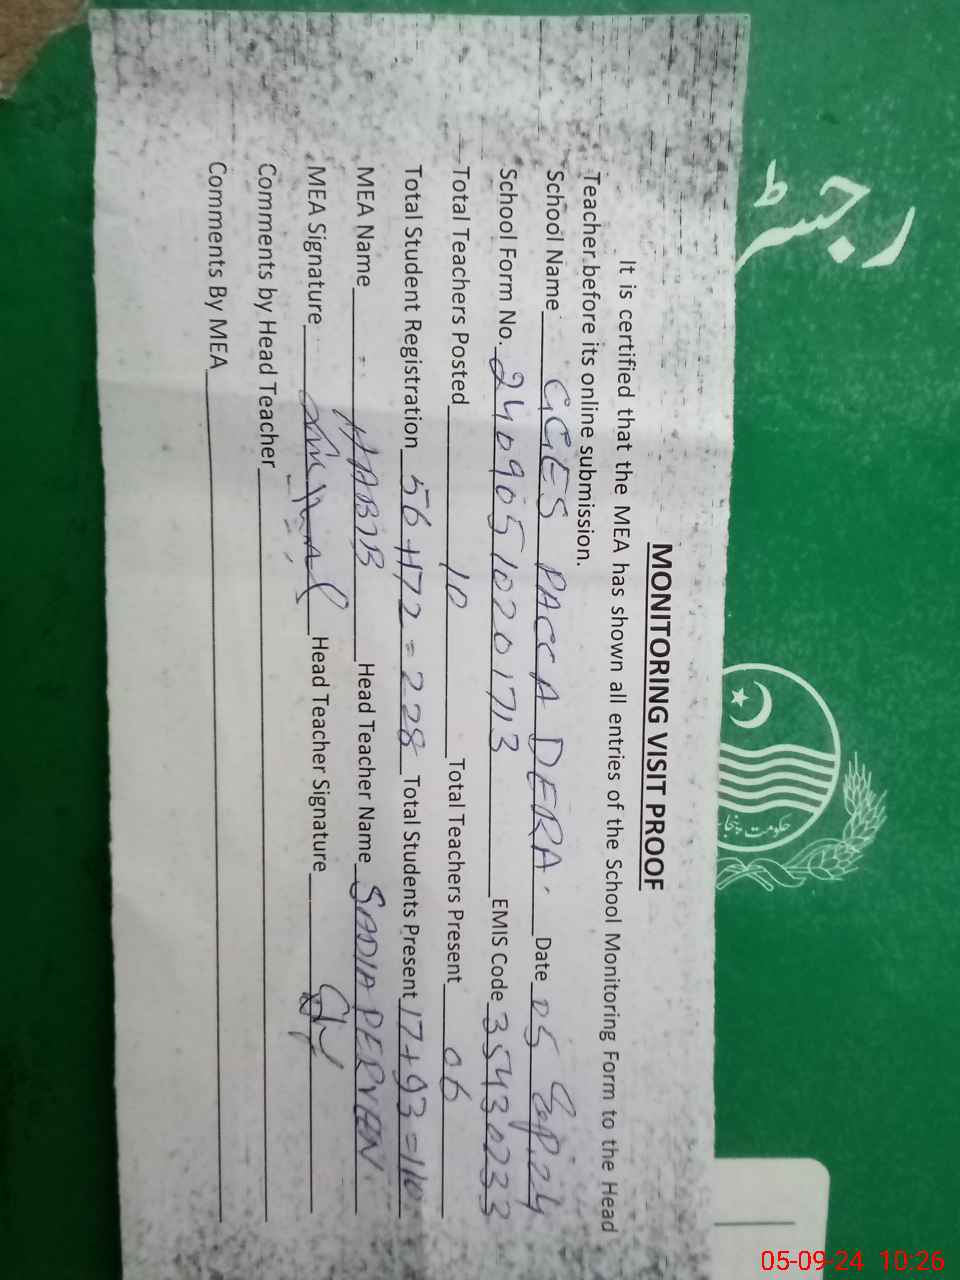 رجسٹر
حکومت پنجاب
MONITORING VISIT PROOF
It is certified that the MEA has shown all entries of the School Monitoring Form to the Head
Teacher before its online submission.
School Name GGES PACCA DERA. Date 05 Sep. 24
School Form No. 24090510201713 EMIS Code 35430233
Total Teachers Posted 10 Total Teachers Present 06
Total Student Registration 56+172=228 Total Students Present 17+93=110
MEA Name HABIB Head Teacher Name SADIA PERVEEN
MEA Signature Head Teacher Signature
Comments by Head Teacher
Comments By MEA
05-09-24 10:26